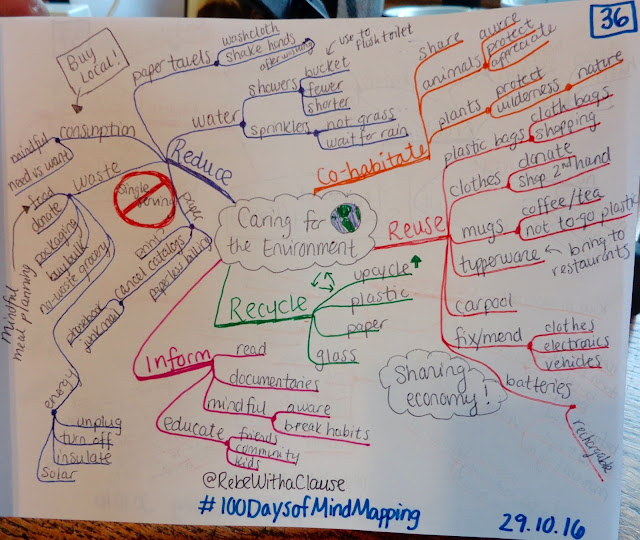 36
Buy
Local!
Caring for
the Environment
Reduce
paper towels
washcloth
shake hands
after washing
water
showers
bucket
fewer
shorter
use to
flush toilet
sprinklers
not grass
wait for rain
consumption
mindful
need vs want
waste
food
donate
packaging
buy bulk
no-waste grocery
mindful
meal planning
Single
serving
paper
print
cancel catalogs
phonebook
junk mail
paperless billing
energy
unplug
turn off
insulate
solar
Co-habitate
share
animals
aware
protect
appreciate
plants
protect
wilderness
nature
Reuse
plastic bags
cloth bags
shopping
clothes
donate
shop 2nd hand
mugs
coffee/tea
not to-go plastic
tupperware
bring to
restaurants
carpool
fix/mend
clothes
electronics
vehicles
batteries
rechargable
Sharing
economy!
Recycle
upcycle
plastic
paper
glass
Inform
read
documentaries
mindful
aware
break habits
educate
friends
community
kids
@RebeWithaClause
#100DaysofMindMapping
29.10.16